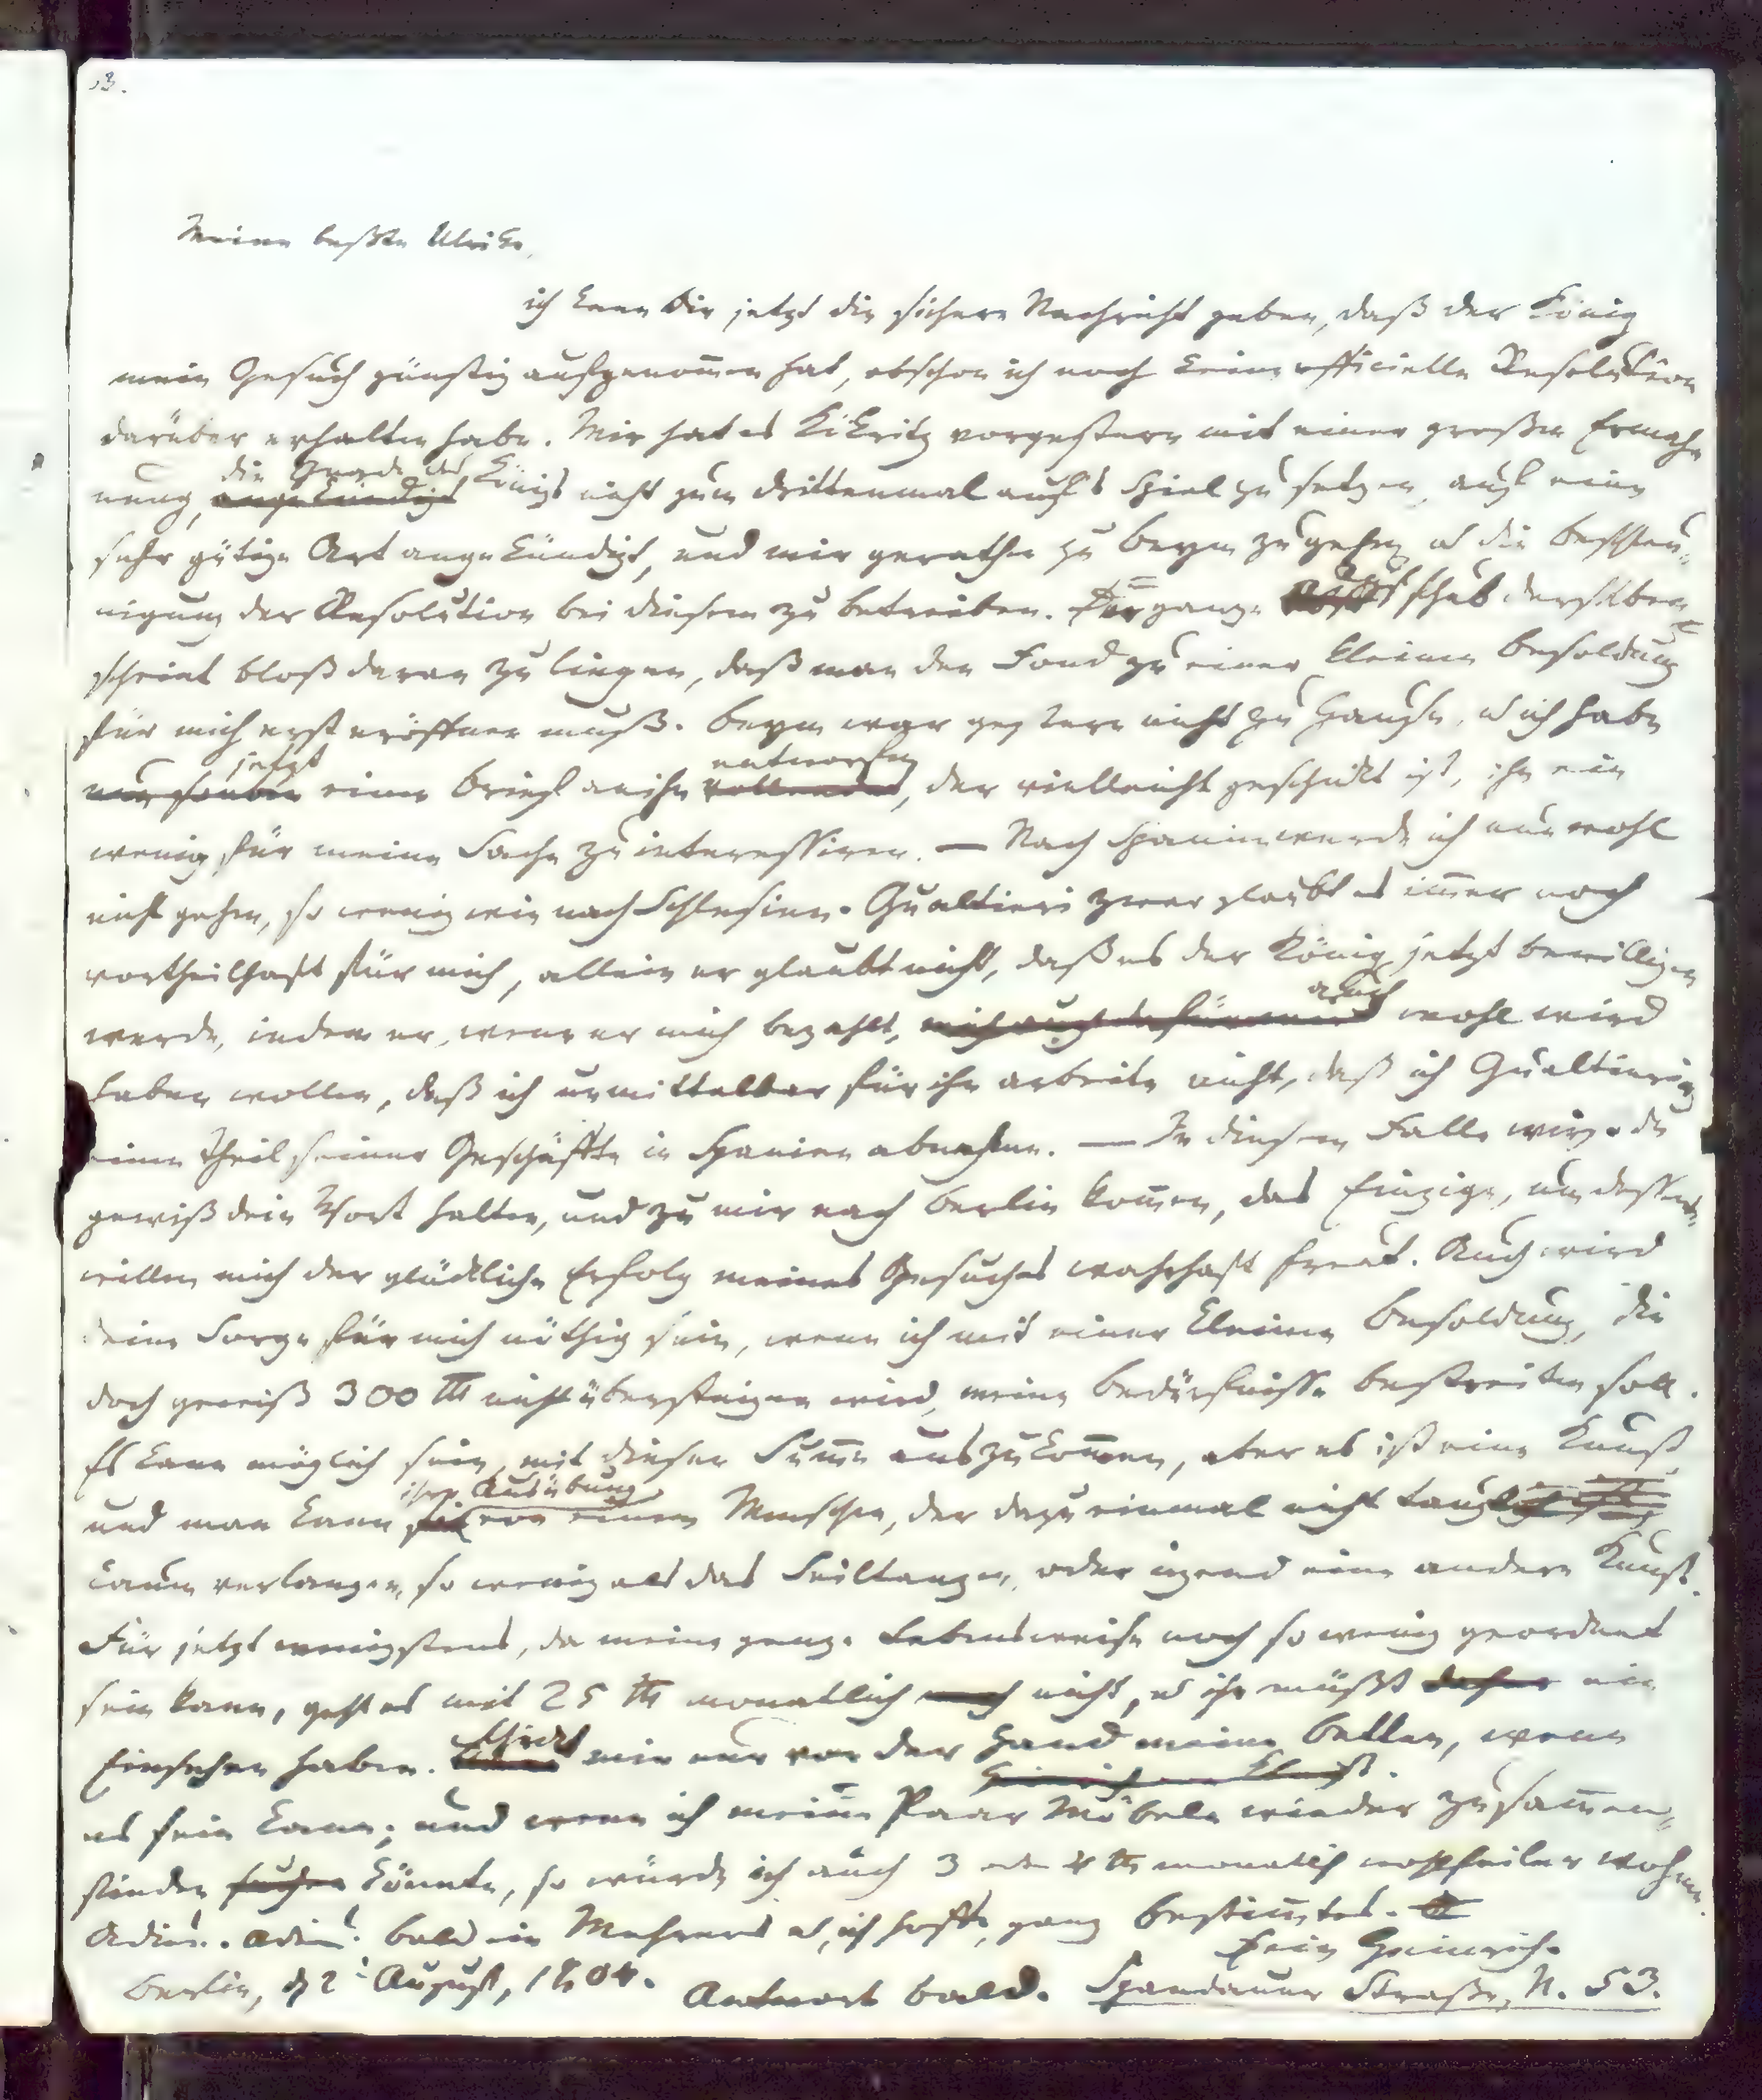 Meine beßte Ulrike,
ich kann Dir jetzt die sichere Nachricht geben, daß der König
mein Gesuch günstig aufgenom̄en hat, obschon ich noch keine officielle Resolution
darüber erhalten habe. Mir hat es Kökritz vorgestern mit einer großen Ermah-
nung, angekündigt die Gnade des Königs nicht zum drittenmal auf's Spiel zu setzen, auf eine
sehr gütige Art angekündigt, und mir gerathen zu Beym zu gehen, u die Beschleu-
nigung der Resolution bei diesem zu betreiben. Der ganze Aufschub derselben
scheint bloß daran zu liegen, daß man den Fond zu einer kleinen Besoldung
für mich erst eröffnen muß. Beym war gestern nicht zu Hause, u ich habe
jetzt einen Brief an ihn vollendet entworfen, der vielleicht geschickt ist, ihn ein
wenig für meine Sache zu interessiren. — Nach Spanien werde ich nun wohl
nicht gehen, so wenig wie nach Schlesien. Gualtieri zwar glaubt es im̄er noch
vortheilhaft für mich, allein er glaubt nicht, daß es der König jetzt bewilligen
werde, indem er, wenn er mich bezahlt, auch wohl wird
haben wollen, daß ich unmittelbar für ihn arbeite, nicht, daß ich Gualtierin
einen Theil seiner Geschäffte in Spanien abnehme. — In diesem Falle wirst du
gewiß dein Wort halten, und zu mir nach Berlin kom̄en, das Einzige, um dessent-
willen mich der glückliche Erfolg meines Gesuches wahrhaft freut. Auch wird
deine Sorge für mich nöthig sein, wenn ich mit einer kleinen Besoldung, die
doch gewiß 300 Th nicht übersteigen wird, meine Bedürfnisse bestreiten soll.
Es kann möglich sein, mit dieser Sum̄e auszukom̄en, aber es ist eine Kunst,
und man kann sie ihre Ausübung von einem Menschen, der dazu einmal nicht tauglich ist,
kaum verlangen, so wenig als das Seiltanzen, oder irgend eine andere Kunst.
Für jetzt wenigstens, da meine ganze Lebensweise noch so wenig geordnet
sein kann, geht es mit 25 Th monatlich noch nicht, u ihr müßt daher ein
Einsehen haben. Schickt mir nur vor der Hand meine Betten, wenn
Heinrich von Kleist.
es sein kann; und wenn ich meine Paar Möbeln wieder zusam̄en-
finden suchen könnte, so würde ich auch 3 oder 4 Th monatlich wohlfeiler wohnen.
Adieu. Adieu. Bald ein Mehreres u, ich hoffe, ganz Bestim̄tes.
Dein Heinrich.
Berlin, d 2t August, 1804. Antwort bald. Spandauer Straße, N. 53.